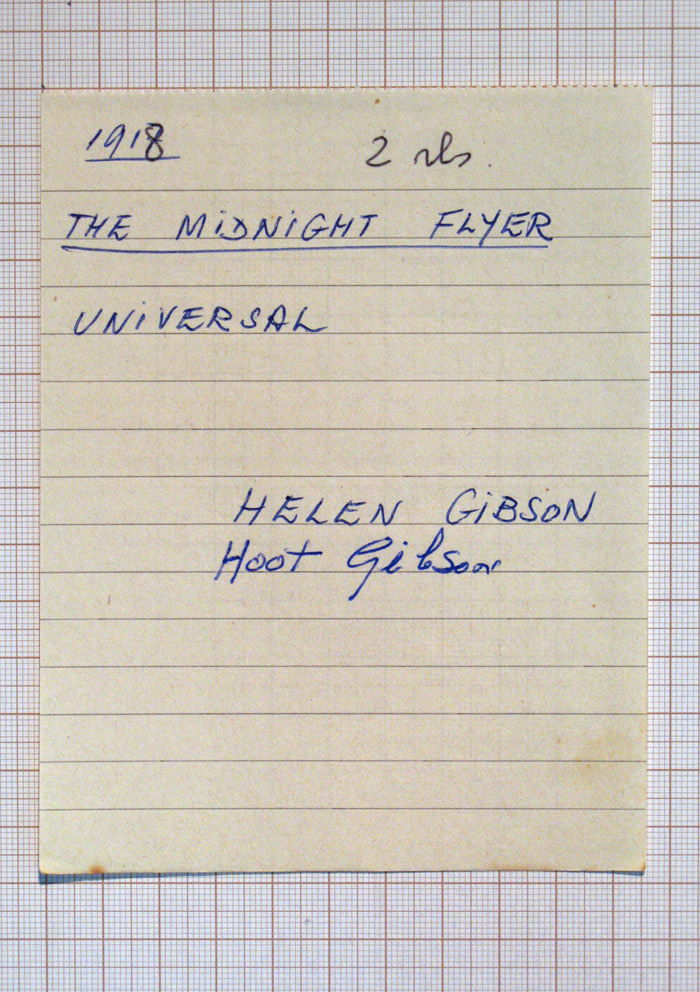 1918 2 rls.
THE MiDNiGHT FLYER
UNiVERSAL
HELEN GiBSON
Hoot Gibson